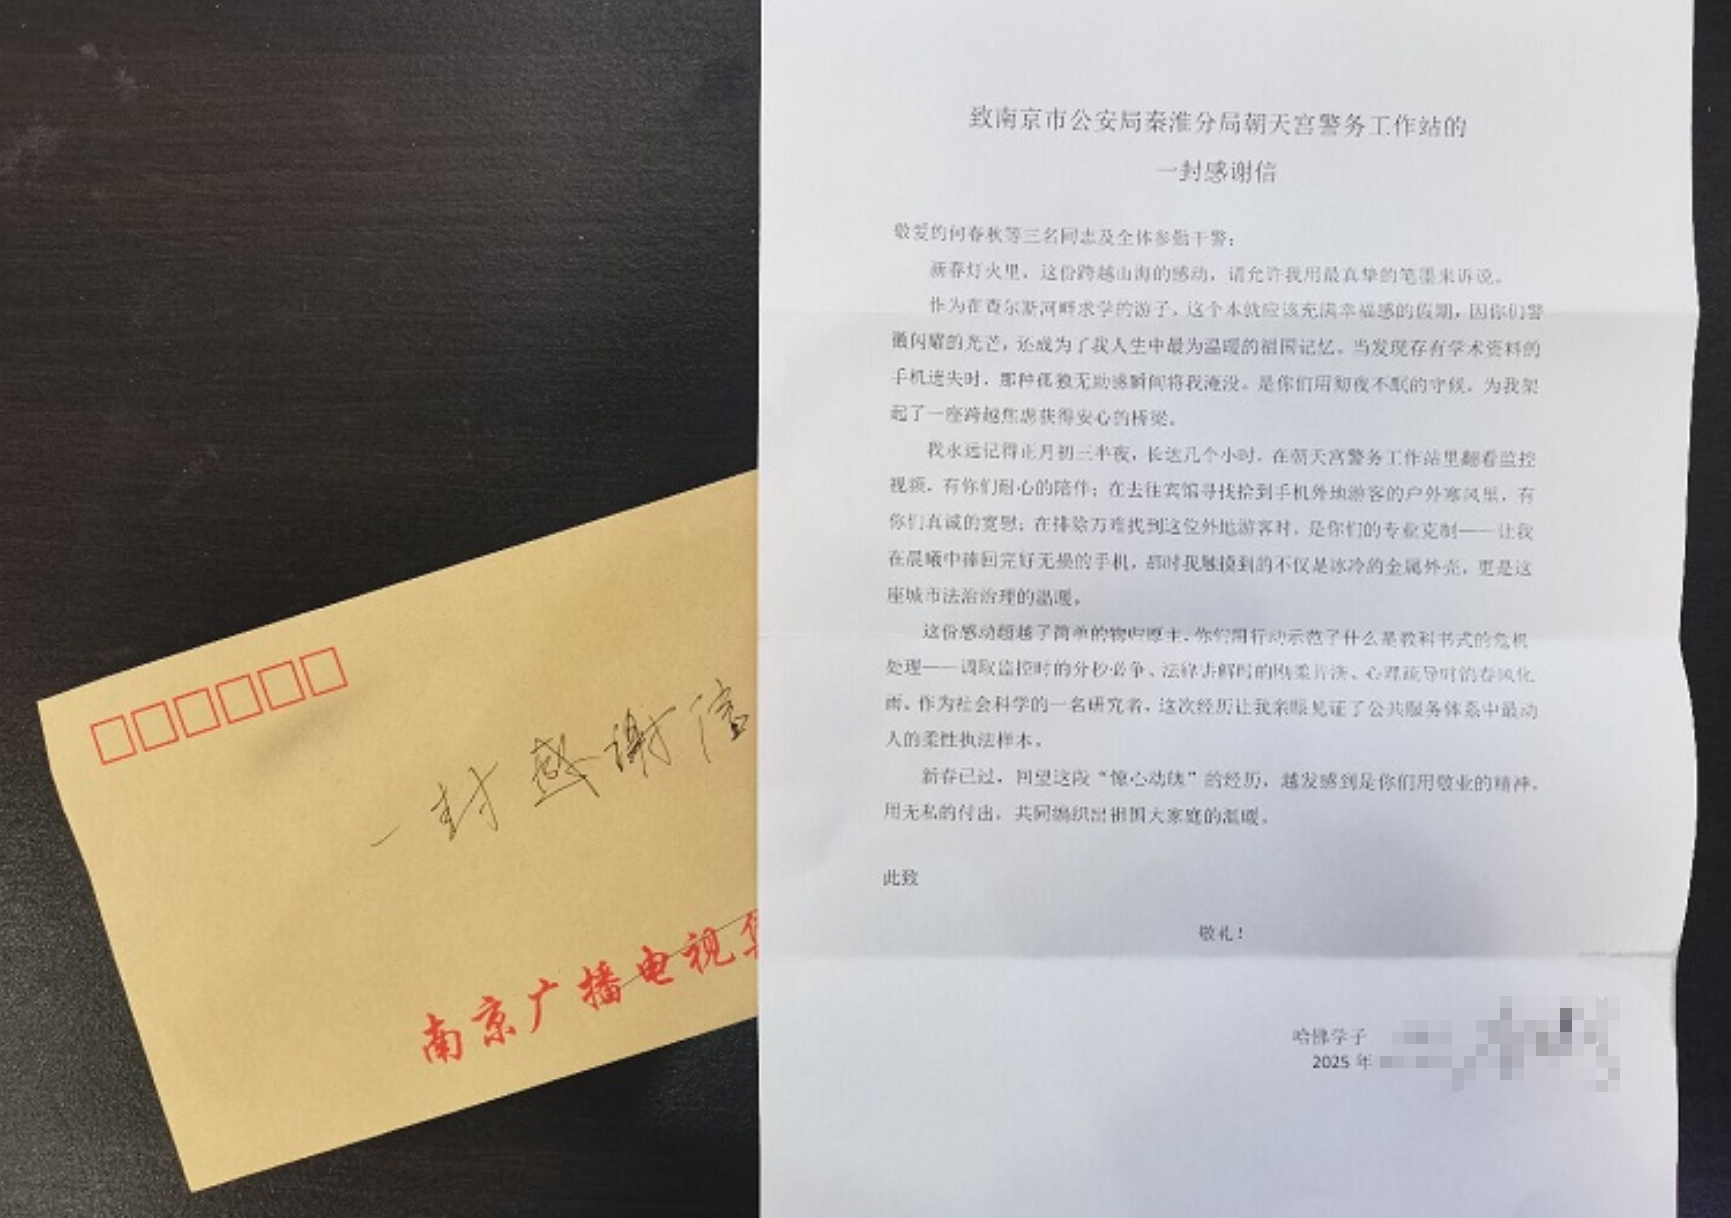 一封感谢信
南京广播电视
致南京市公安局秦淮分局朝天宫警务工作站的
一封感谢信
敬爱的何春秋等三名同志及全体参勤干警：
新春灯火里，这份跨越山海的感动，请允许我用最真挚的笔墨来诉说。
作为在查尔斯河畔求学的游子，这个本就应该充满幸福感的假期，因你们警
徽闪耀的光芒，还成为了我人生中最为温暖的祖国记忆。当发现存有学术资料的
手机遗失时，那种孤独无助感瞬间将我淹没。是你们用彻夜不眠的守候，为我架
起了一座跨越焦虑获得安心的桥梁。
我永远记得正月初三半夜，长达几个小时，在朝天宫警务工作站里翻看监控
视频，有你们耐心的陪伴；在去往宾馆寻找拾到手机外地游客的户外寒风里，有
你们真诚的宽慰；在排除万难找到这位外地游客时，是你们的专业克制——让我
在晨曦中捧回完好无损的手机，那时我触摸到的不仅是冰冷的金属外壳，更是这
座城市法治治理的温暖。
这份感动超越了简单的物归原主，你们用行动示范了什么是教科书式的危机
处理——调取监控时的分秒必争、法律讲解时的刚柔并济、心理疏导时的春风化
雨。作为社会科学的一名研究者，这次经历让我亲眼见证了公共服务体系中最动
人的柔性执法样本。
新春已过，回望这段“惊心动魄”的经历，越发感到是你们用敬业的精神，
用无私的付出，共同编织出祖国大家庭的温暖。
此致
敬礼！
哈佛学子
2025 年